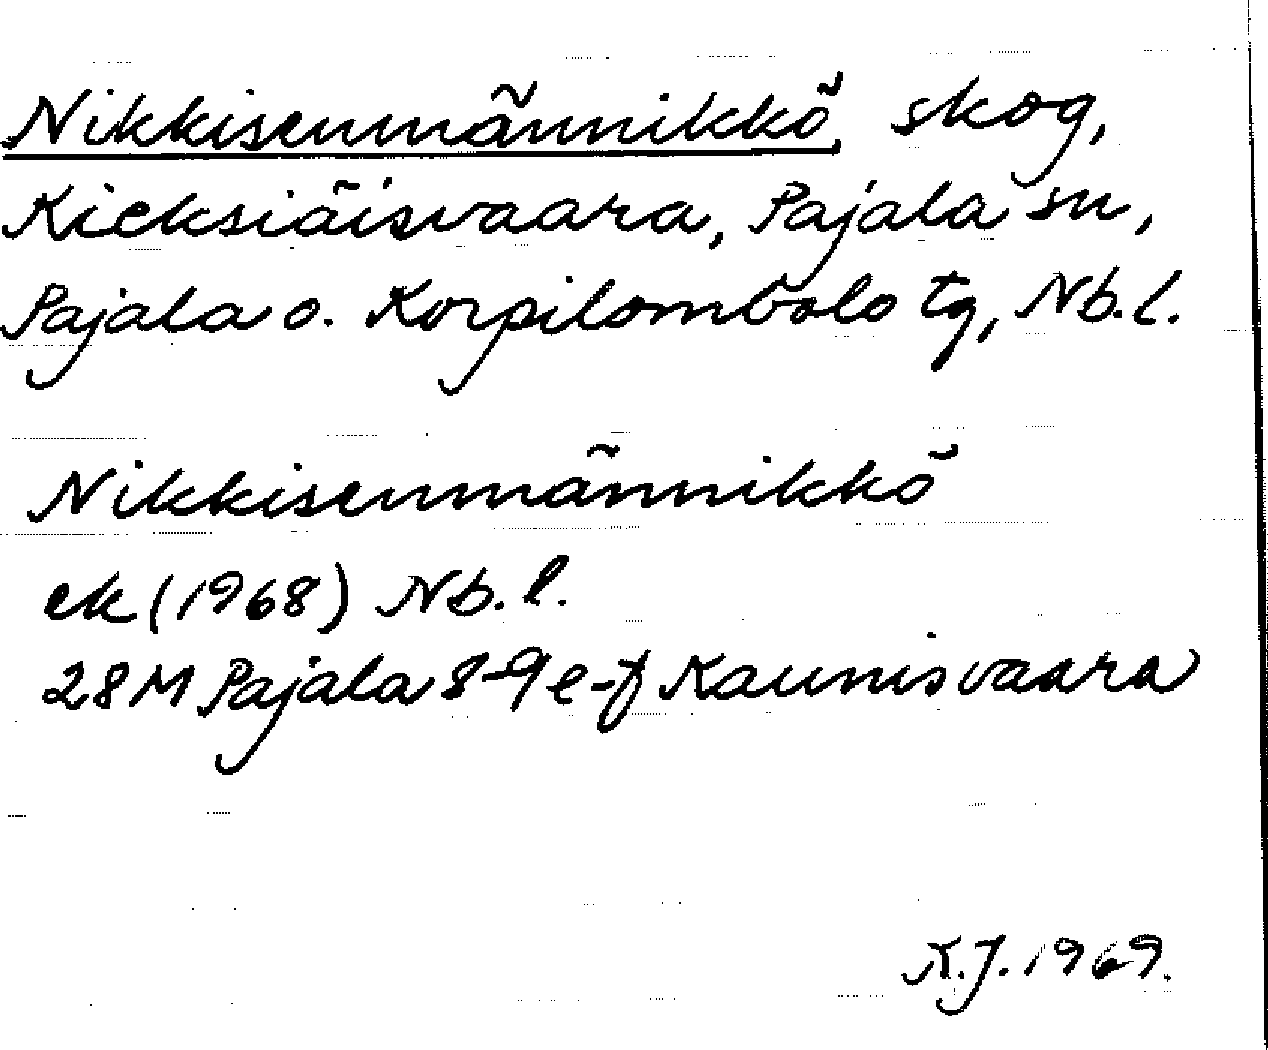 Nikkisenmännikkö, skog,
Kieksiäisvaara, Pajala sn,
Pajala o. Korpilombolo tg, Nb.l.
Nikkisenmännikkö
ek (1968) Nb.l.
28M Pajala 8-9 e-f Kaunisvaara
K.J. 1969.